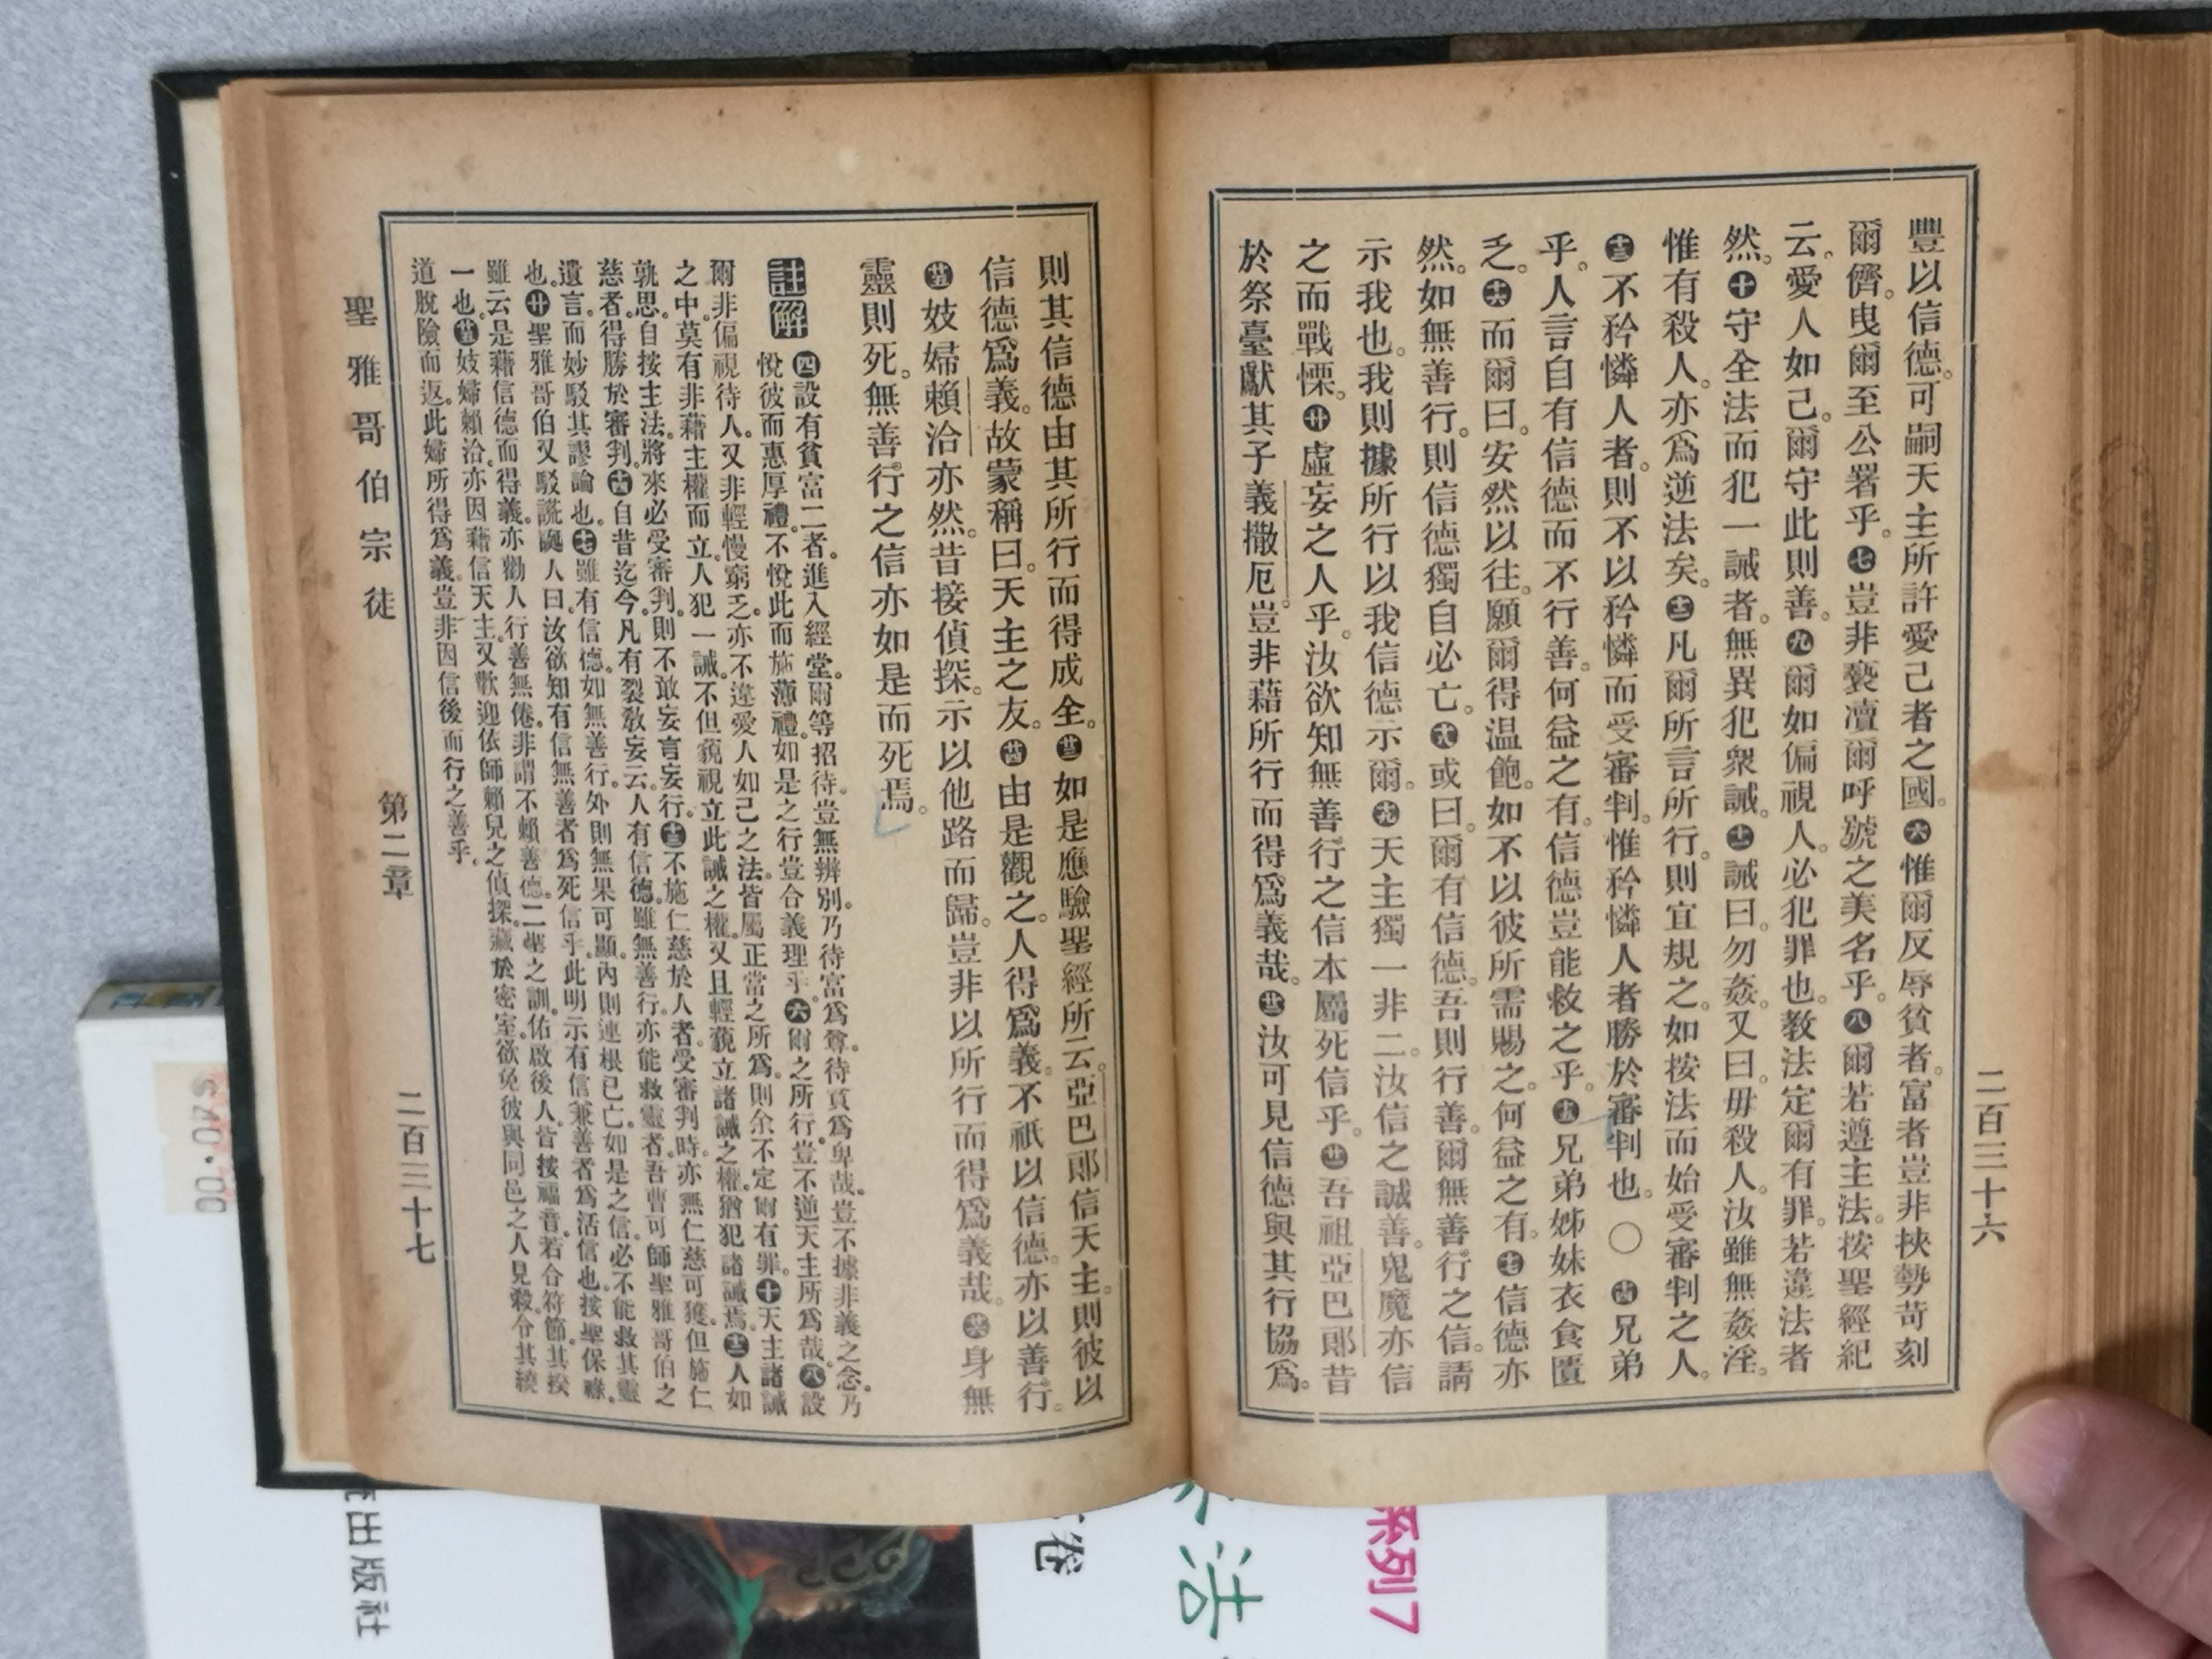 豐以信德。可嗣天主所許愛己者之國。六惟爾反辱貧者。富者豈非挾勢苛刻
爾儕。曳爾至公署乎。七豈非褻凟爾呼號之美名乎。八爾若遵主法。按聖經紀
云。愛人如己。爾守此則善。九爾如偏視人。必犯罪也。教法定爾有罪。若違法者
然。十守全法而犯一誡者。無異犯衆誡。十一誡曰。勿姦。又曰。毋殺人。汝雖無姦淫。
惟有殺人。亦爲逆法矣。十二凡爾所言所行。則宜規之。如按法而始受審判之人。
十三不矜憐人者。則不以矜憐而受審判。惟矜憐人者勝於審判也。〇十四兄弟
乎。人言自有信德而不行善。何益之有。信德豈能救之乎。十五兄弟姊妹衣食匱
乏。十六而爾曰。安然以往。願爾得温飽。如不以彼所需賜之。何益之有。十七信德亦
然。如無善行。則信德獨自必亡。十八或曰。爾有信德。吾則行善。爾無善行之信。請
示我也。我則據所行以我信德示爾。十九天主獨一非二。汝信之誠善。鬼魔亦信
之而戰慄。廿虛妄之人乎。汝欲知無善行之信本屬死信乎。廿一吾祖亞巴郞昔
於祭臺獻其子義撒厄。豈非藉所行而得爲義哉。廿二汝可見信德與其行協爲。
二百三十六
則其信德由其所行而得成全。廿三如是應驗聖經所云。亞巴郞信天主。則彼以
信德爲義。故蒙稱曰。天主之友。廿四由是觀之。人得爲義。不祇以信德。亦以善行。
廿五妓婦賴洽亦然。昔接偵探。示以他路而歸。豈非以所行而得爲義哉。廿六身無
靈則死。無善行之信亦如是而死焉。
註解 四設有貧富二者。進入經堂。爾等招待。豈無辨別。乃待富爲尊。待貧爲卑哉。豈不據非義之念。乃
悅彼而惠厚禮。不悅此而施薄禮。如是之行豈合義理乎。六爾之所行。豈不逆天主所爲哉。八設
爾非偏視待人。又非輕慢窮乏。亦不違愛人如己之法。皆屬正當之所爲。則余不定爾有罪。十天主諸誡
之中。莫有非藉主權而立。人犯一誡。不但藐視立此誡之權。又且輕藐立諸誡之權。猶犯諸誡焉。十二人如
孰思。自按主法。將來必受審判。則不敢妄言妄行。十三不施仁慈於人者。受審判時。亦無仁慈可獲。但施仁
慈者。得勝於審判。十四自昔迄今。凡有裂敎妄云。人有信德。雖無善行。亦能救靈者。吾曹可師聖雅哥伯之
遺言。而妙駁其謬論也。十七雖有信德。如無善行。外則無果可顯。內則連根已亡。如是之信。必不能救其靈
也。廿聖雅哥伯又駁謊誕人曰。汝欲知有信無善者爲死信乎。此明示有信兼善者爲活信也。按聖保祿。
雖云是藉信德而得義。亦勸人行善無倦。非謂不賴善德。二聖之訓。佑啟後人。皆按福音。若合符節。其揆
一也。廿五妓婦賴洽。亦因藉信天主。又歡迎依師賴兒之偵探。藏於密室。欲免彼與同邑之人見殺。令其繞
道脫險而返。此婦所得爲義。豈非因信後而行之善乎。
聖雅哥伯宗徒 第二章 二百三十七
$40.00
出版社
卷
活
系列7